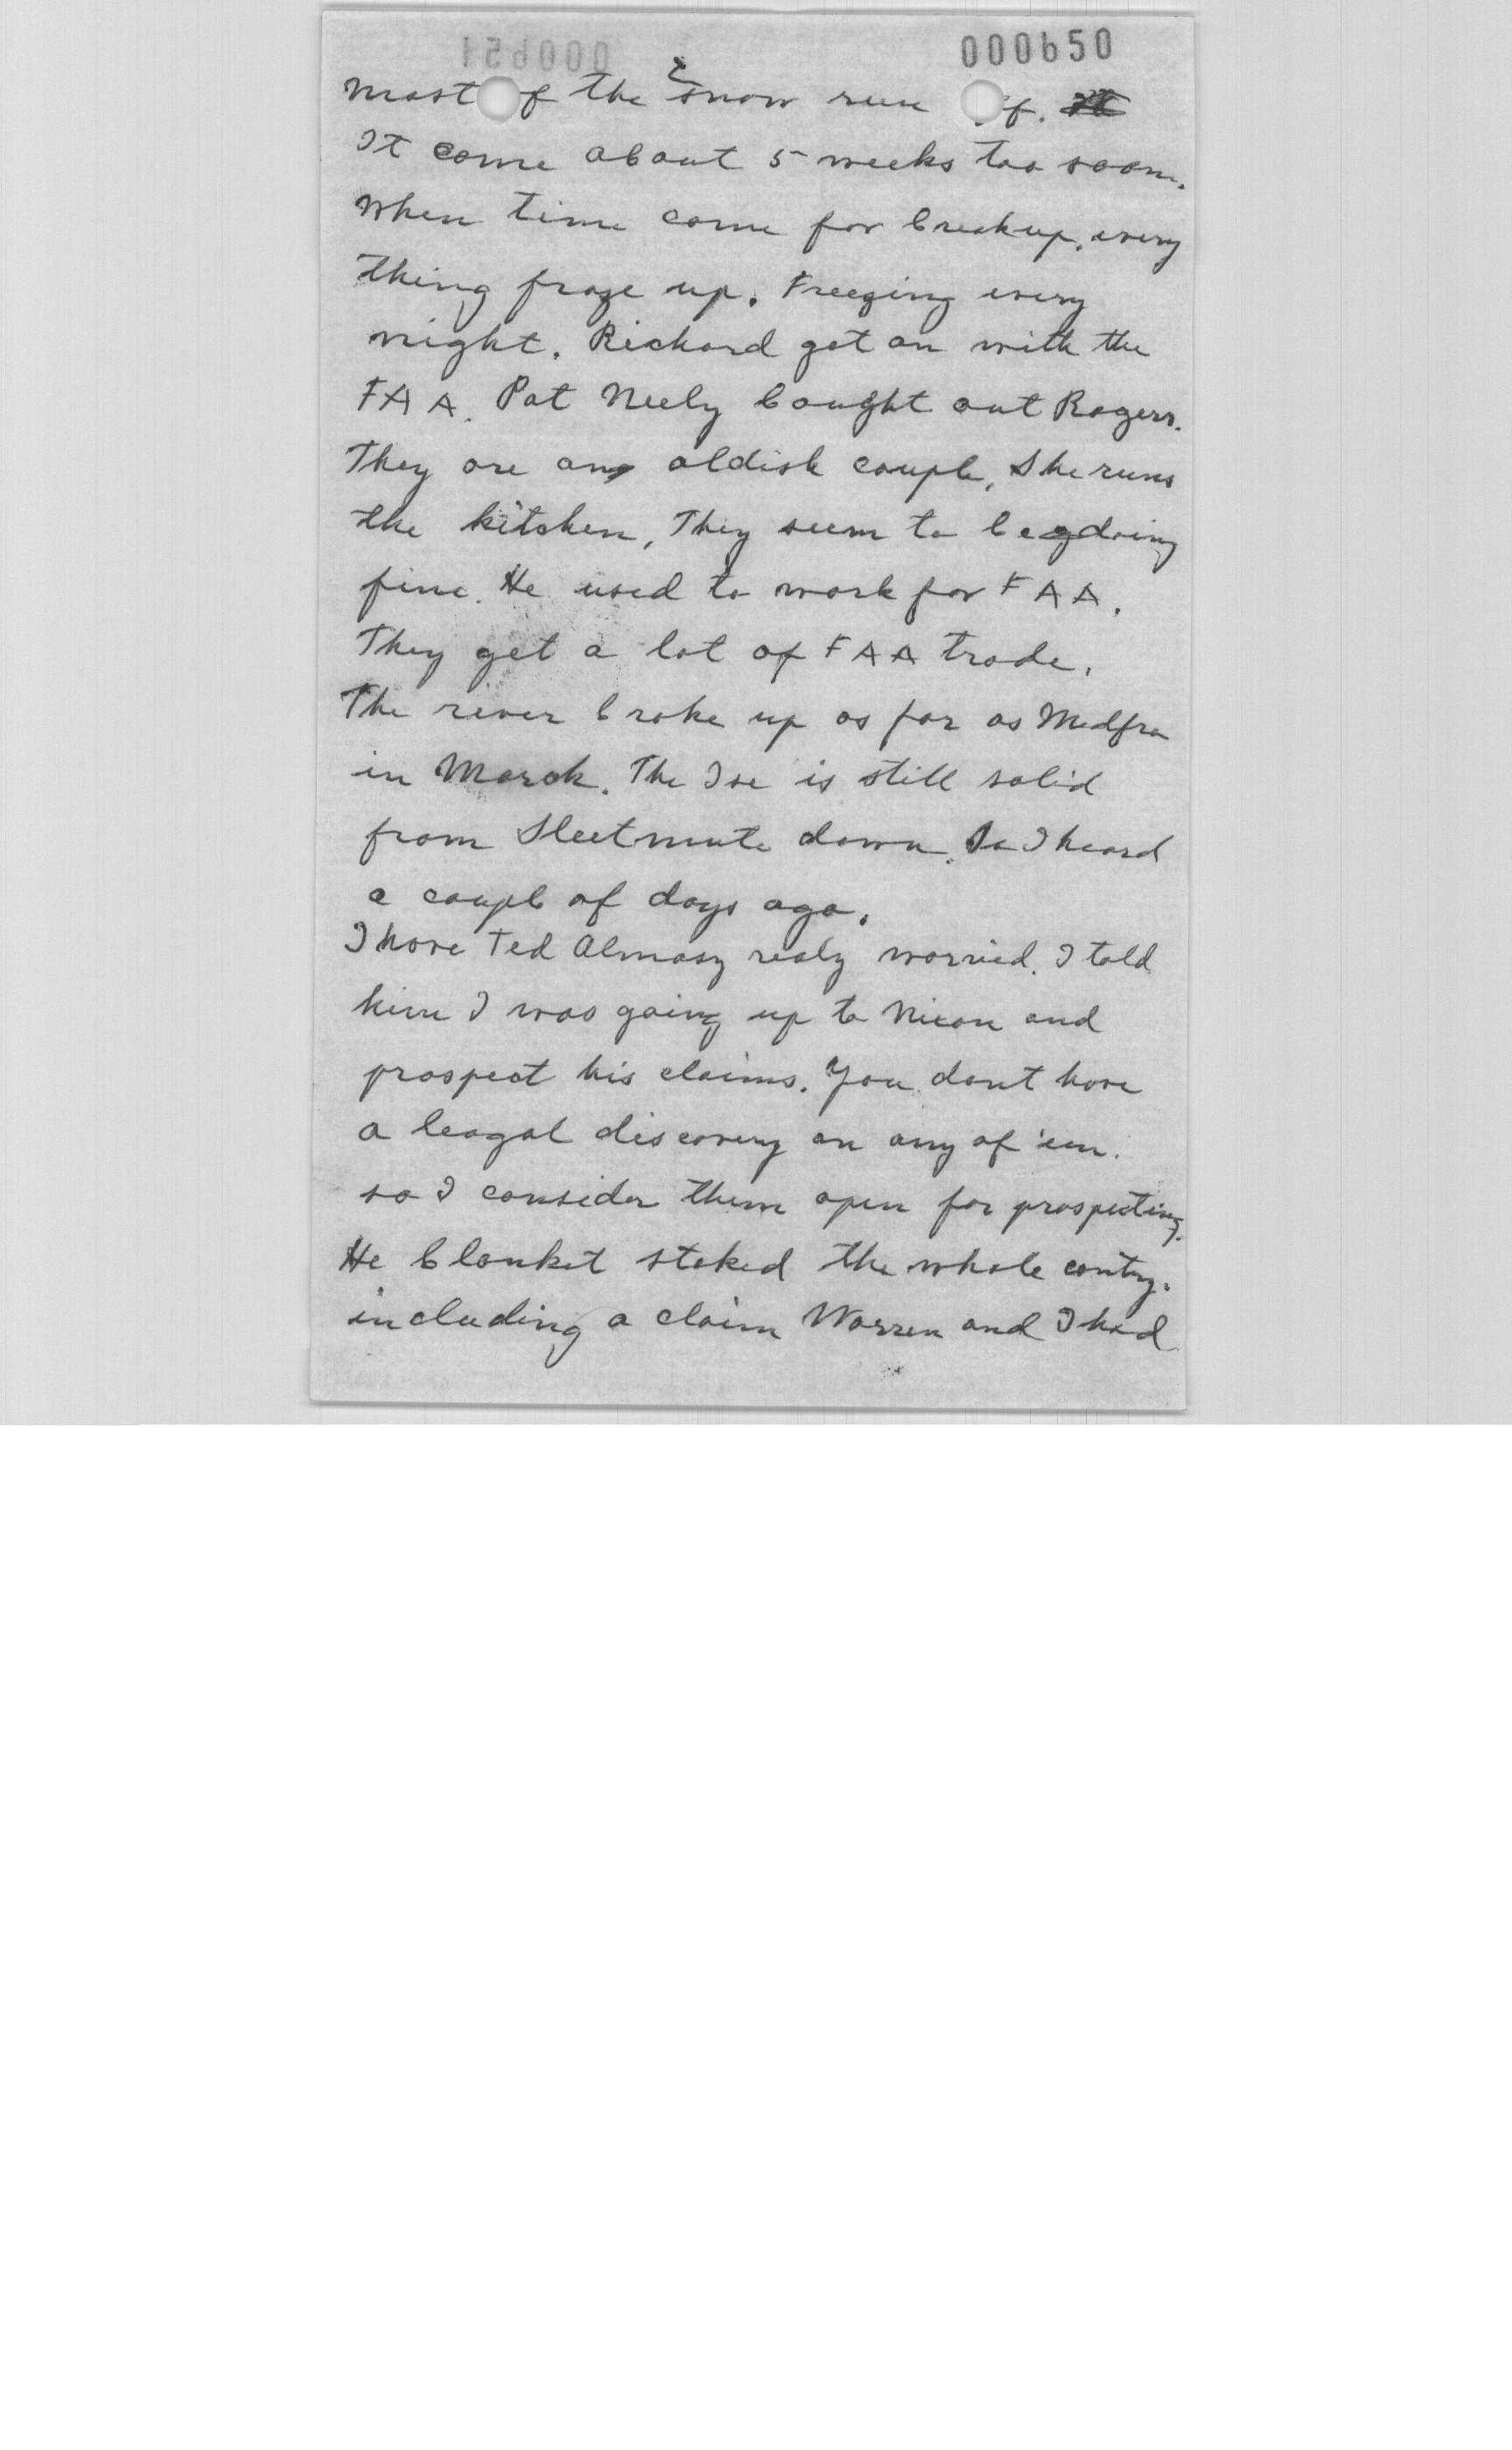 000650
most of the snow run off.
It come about 5 weeks too soon.
When time come for breakup. every
thing froze up. Freezing every
night. Richard got on with the
FAA. Pat Neely bought out Rogers.
They are an oldish couple, She runs
the kitchen, They seem to be doing
fine. He used to work for FAA.
They get a lot of FAA trade.
The river broke up as far as Medfra
in March. The Ice is still solid
from Sleetmute down. So I heard
a coupl of days ago.
I have Ted Almasy realy worried. I told
him I was going up to Nixon and
prospect his claims. You dont have
a leagal discovery on any of 'em.
so I consider them open for prospecting.
He blanket staked the whole contry.
including a claim Warren and I had